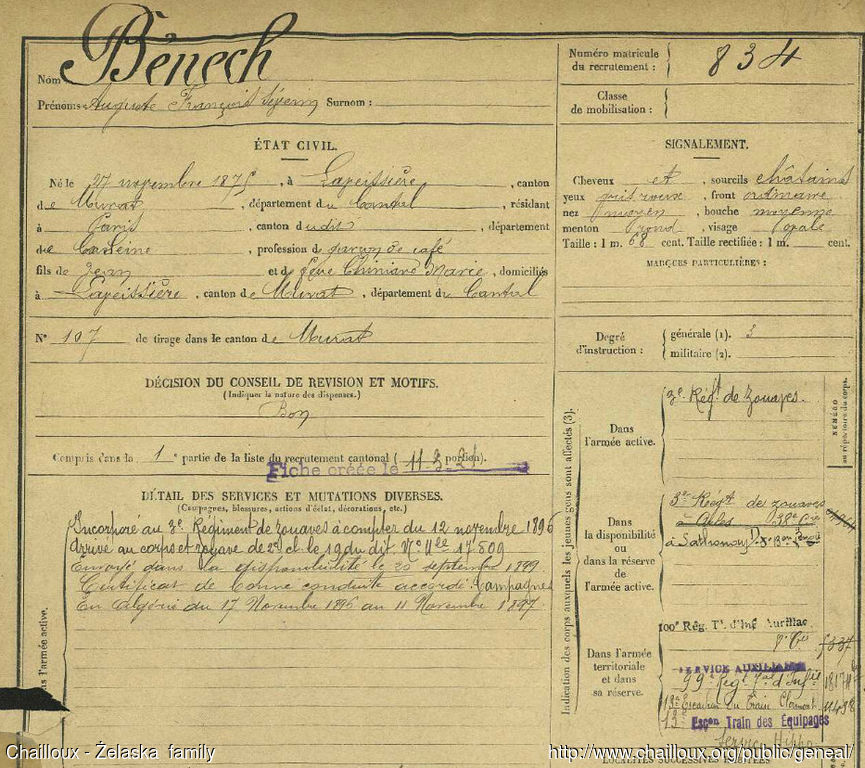 Nom : Bénech
Prénoms : Auguste François Séverin Surnom :
Numéro matricule du recrutement : 834
Classe de mobilisation :
ÉTAT CIVIL.
Né le 27 novembre 1875, à Lapeissière, canton
de Murat, département du Cantal, résidant
à Paris, canton dudit, département
de La Seine, profession de garçon de café
fils de Jean et de feue Chiniard Marie, domiciliés
à Lapeissière, canton de Murat, département du Cantal
N° 107 de tirage dans le canton de Murat
SIGNALEMENT.
Cheveux et, sourcils châtains
yeux gris roux, front ordinaire
nez moyen, bouche moyenne
menton rond, visage ovale
Taille : 1 m. 68 cent. Taille rectifiée : 1 m. cent.
MARQUES PARTICULIÈRES :
Degré d'instruction : générale (1). 3
militaire (2).
DÉCISION DU CONSEIL DE REVISION ET MOTIFS.
(Indiquer la nature des dispenses.)
Bon
Compris dans la 1e partie de la liste du recrutement cantonal ( portion).
Fiche créée le 11-3-21
DÉTAIL DES SERVICES ET MUTATIONS DIVERSES.
(Campagnes, blessures, actions d'éclat, décorations, etc.)
Incorporé au 3e Régiment de zouaves à compter du 12 novembre 1896
Arrivé au corps et zouave de 2e cl. le 19 du dit. No Mle 17.809
Envoyé dans la disponibilité le 20 septembre 1899
Certificat de bonne conduite accordé. Campagnes
En Algérie du 17 Novembre 1896 au 11 Novembre 1897
ns l'armée active.
Indication des corps auxquels les jeunes gens sont affectés (3).
NUMÉRO au répertoire du corps.
Dans l'armée active.
3e Régt de Zouaves.
Dans la disponibilité ou dans la réserve de l'armée active.
3e Régt de zouaves
à Sathonay
Dans l'armée territoriale et dans sa réserve.
100e Rég. Tal d'Inf Aurillac
8e Cie 5337
SERVICE AUXILIAIRE
99e Régt Tal d'Inftie
13e Escadron du Train Clermont
13 Escon Train des Équipages
Service Hippo
LOCALITÉS SUCCESSIVES HABITÉES
Chailloux - Żelaska family
http://www.chailloux.org/public/geneal/